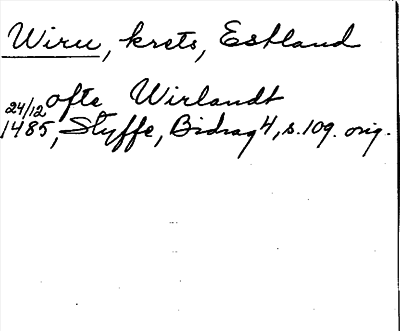 Wiru, krets, Estland
ofte Wirlandt
24/12
1485, Styffe, Bidrag 4, s. 109. orig.